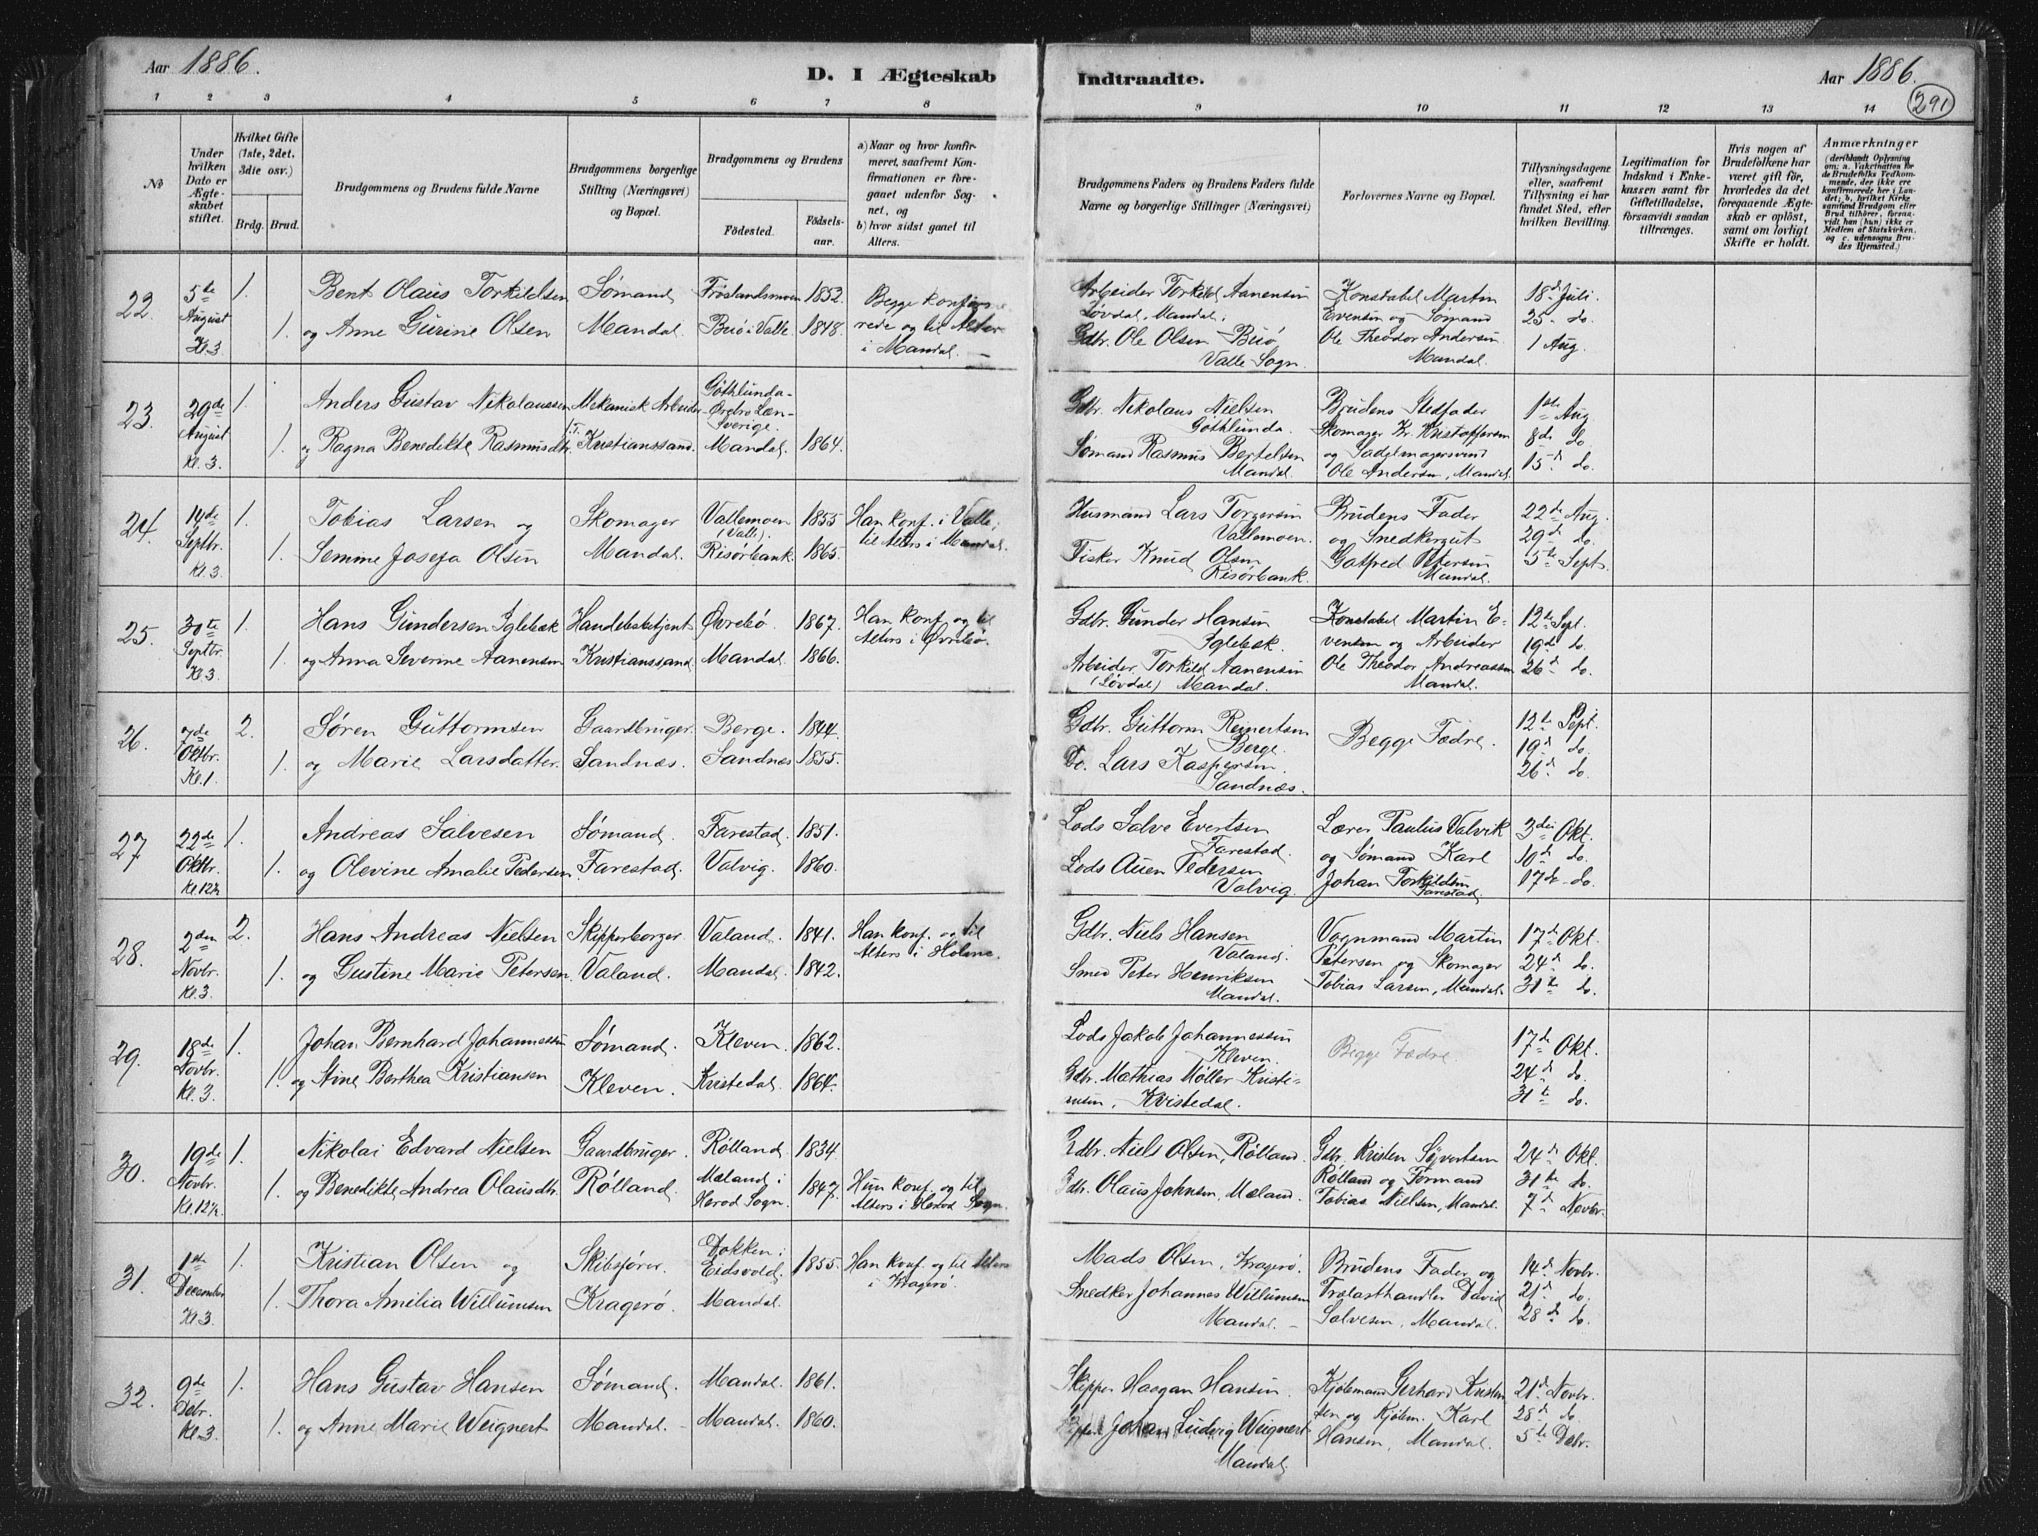 Aar 1886.
D. I Ægteskab
Indtraadte.
Aar 1886.
291
1 2 3 4 5 6 7 8
9 10 11 12 13 14
No
Under hvilken Dato er Ægteskabet stiftet.
Hvilket Gifte (1ste, 2det, 3die osv.)
Brdg. Brud.
Brudgommens og Brudens fulde Navne
Brudgommens borgerlige Stilling (Næringsvei) og Bopæl.
Brudgommens og Brudens
Födested.
Födselsaar.
a) Naar og hvor konfirmeret, saafremt Konfirmationen er foregaaet udenfor Sognet, og
b) hvor sidst gaaet til Alters.
Brudgommens Faders og Brudens Faders fulde Navne og borgerlige Stillinger (Næringsvei)
Forlovernes Navne og Bopæl.
Tillysningsdagene eller, saafremt Tillysning ei har fundet Sted, efter hvilken Bevilling.
Legitimation for Indskud i Enkekassen samt for Giftetilladelse, forsaavidt saadan tiltrænges.
Hvis nogen af Brudefolkene har været gift för, hvorledes da det foregaaende Ægteskab er oplöst, samt om lovligt Skifte er holdt.
Anmærkninger
(deriblandt Oplysning om: a. Vakcination for de Brudefolks Vedkommende, der ikke ere konfirmerede her i Landet; b. hvilket Kirkesamfund Brudgom eller Brud tilhörer, forsaavidt han (hun) ikke er Medlem af Statskirken, og c. udensogns Brudes Hjemsted.)
22. 5te August Kl. 3 1. Bent Olaus Torkildsen Sømand Frøslandsmoen 1852. Begge konfirme-
1. og Anne Gurine Olsen Mandal. Buø i Valle 1848. rede og til Alters
i Mandal.
Arbeider Torkild Aanensen Konstabel Martin 18de Juli.
Løvdal, Mandal. Evensen og Sømand 25 do.
Gdbr. Ole Olsen Buø Ole Theodor Andersen 1 Aug.
Valle Sogn. Mandal.
23. 29de August Kl. 3. 1. Anders Gustav Nikolaussen Mekanisk Arbeider Götklunda Ørebro Læn Sverige.
1. og Ragna Benedikte Rasmusdtr. Kristianssand. Mandal. 1864.
Gdbr. Nikolaus Nielsen Brudens Stedfader 1ste Aug
Götklunda. Skomager Kr. Kristoffersen 8de do
Sømand Rasmus Bertelsen og Sadelmagersvend 15 do.
Mandal. Ole Andersen, Mandal.
24. 14de Septbr. Kl. 3 1. Tobias Larsen og Skomager Vallemoen (Valle). 1855 Han konf. i Valle,
1. Semine Josefa Olsen Mandal. Risørbank. 1865. til Alters i Mandal.
Husmand Lars Torgersen Brudens Fader 22de Aug.
Vallemoen. og Snedkersvt 29de do.
Fisker Knud Olsen Gotfred Petersen 5te Sept.
Risørbank. Mandal.
25. 30te Septbr. Kl. 3 1. Hans Gundersen Iglebæk Handelsbetjent Øvrebö 1867. Han konf. og til
1. og Anna Severine Aanensen Kristianssand Mandal. 1866. Alters i Øvrebö.
Gdbr. Gunder Hansen Konstabel Martin E- 12te Sept.
Iglebæk. vensen og Arbeider 19de do.
Arbeider Torkild Aanensen Ole Theodor Andreassen 26de do.
(Løvdal) Mandal. Mandal.
26. 7de Oktbr. Kl. 1. 2. Søren Guttormsen Gaardbruger. Berge. 1844.
1. og Marie Larsdatter. Sandnæs. Sandnæs 1855.
Gdbr. Guttorm Reinertsen Begge Fædre. 12te Sept.
Berge. 19de do.
Do. Lars Kaspersen 26de do.
Sandnæs.
27 22de Oktbr. Kl. 12½ 1. Andreas Salvesen Sømand. Farestad. 1851.
1. og Olevine Amalie Pedersen. Farestad. Valvig. 1860.
Lods Salve Evertsen Lærer Paulus Valvik 3die Okt.
Farestad. og Sømand Karl 10de do.
Lods Auen Pedersen Johan Torkildsen 17de do.
Valvig. Farestad.
28. 2den Novbr. Kl. 3. 2. Hans Andreas Nielsen Skipperborger. Valand. 1841. Han konf. og til
1. og Gustine Marie Petersen. Valand. Mandal. 1842. Alters i Holme.
Gdbr. Niels Hansen Vognmand Martin 17de Okt.
Valand. Petersen og Skomager 24de do.
Smed Peter Henriksen Tobias Larsen, Mandal. 31te do.
Mandal.
29. 18de Novbr. Kl. 3. 1. Johan Bernhard Johannessen Sømand. Kleven. 1862.
1. og Nine Berthea Kristiansen Kleven. Kvistedal. 1864.
Lods Jakob Johannessen Begge Fædre. 17de Okt.
Kleven. 24de do.
Gdbr. Mathias Møller Kristi- 31te do.
ansen, Kvistedal.
30. 19de Novbr. Kl. 12½ 1. Nikolai Edvard Nielsen Gaardbruger. Rølland. 1834.
1. og Benedikte Andrea Olausdtr. Rølland. Mæland i Herod Sogn. 1847. Hun konf. og til
Alters i Herod Sogn.
Gdbr. Niels Olsen, Rølland. Gdbr. Kristen Sÿvertsen 24de Okt.
Gdbr. Olaus Johnsen, Mæland. Rølland og Formand 31te do.
Tobias Nielsen, Mandal. 7de Novbr.
31. 1ste December Kl. 3 1. Kristian Olsen og Skibsfører. Dokken i Eidsvold. 1855. Han konf. og til Alters
1. Thora Amilia Willumsen Kragerø. Mandal. i Kragerø.
Mads Olsen, Kragerø. Brudens Fader og 14de Novbr.
Snedker Johannes Willumsen Trælasthandler David 21de do.
Mandal. Salvesen, Mandal. 28de do.
32. 9de Debr. Kl. 3 1. Hans Gustav Hansen Sømand. Mandal. 1861.
1. og Anne Marie Weignert Mandal. Mandal. 1860.
Skipper Haagan Hansen. Kjøbmand Gerhard Kristen- 21de Novbr.
Johan Ludvig Weignert sen og Kjøbm. Karl 28de do.
Mandal. Hansen, Mandal. 5te Debr.